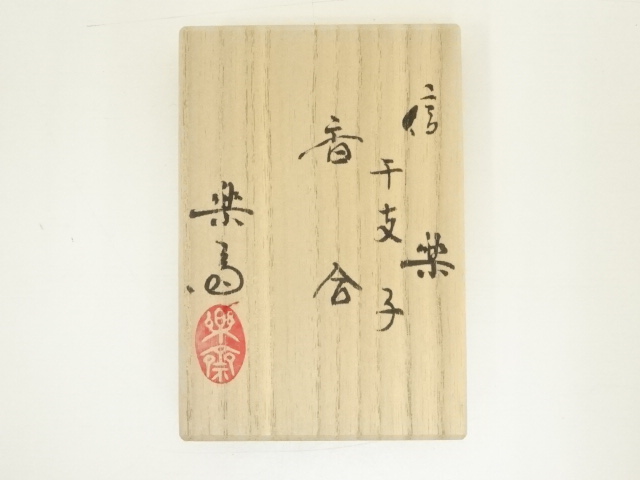 信楽
干支子
香合
楽斎
樂齋